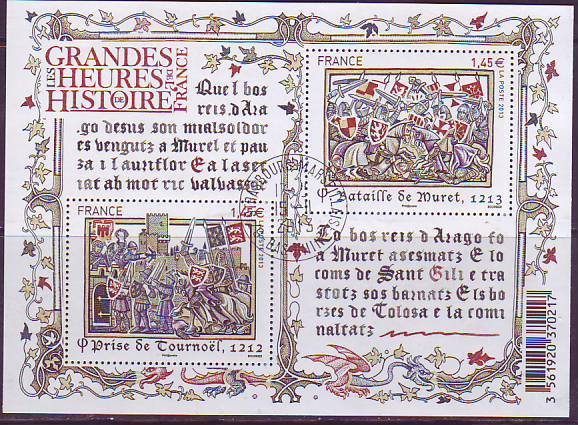 LES GRANDES HEURES DE L'HISTOIRE DE FRANCE
Que l bos
reis d'Arago
go desus son mialsoldor
es vengutz a Muret et pau
za i lauriflor E a la ser
iat ab mot ric valvassor
FRANCE 1,45 €
LA POSTE 2013
Bataille de Muret, 1213
FRANCE 1,45 €
LA POSTE 2013
Prise de Tournoël, 1212
Lo bos reis d'Arago fo
a Muret asesmatz E lo
coms de Sant Gili e tra
stotz sos barnatz Els bor
zes de Tolosa e la comi
naltatz
3 561920 370217